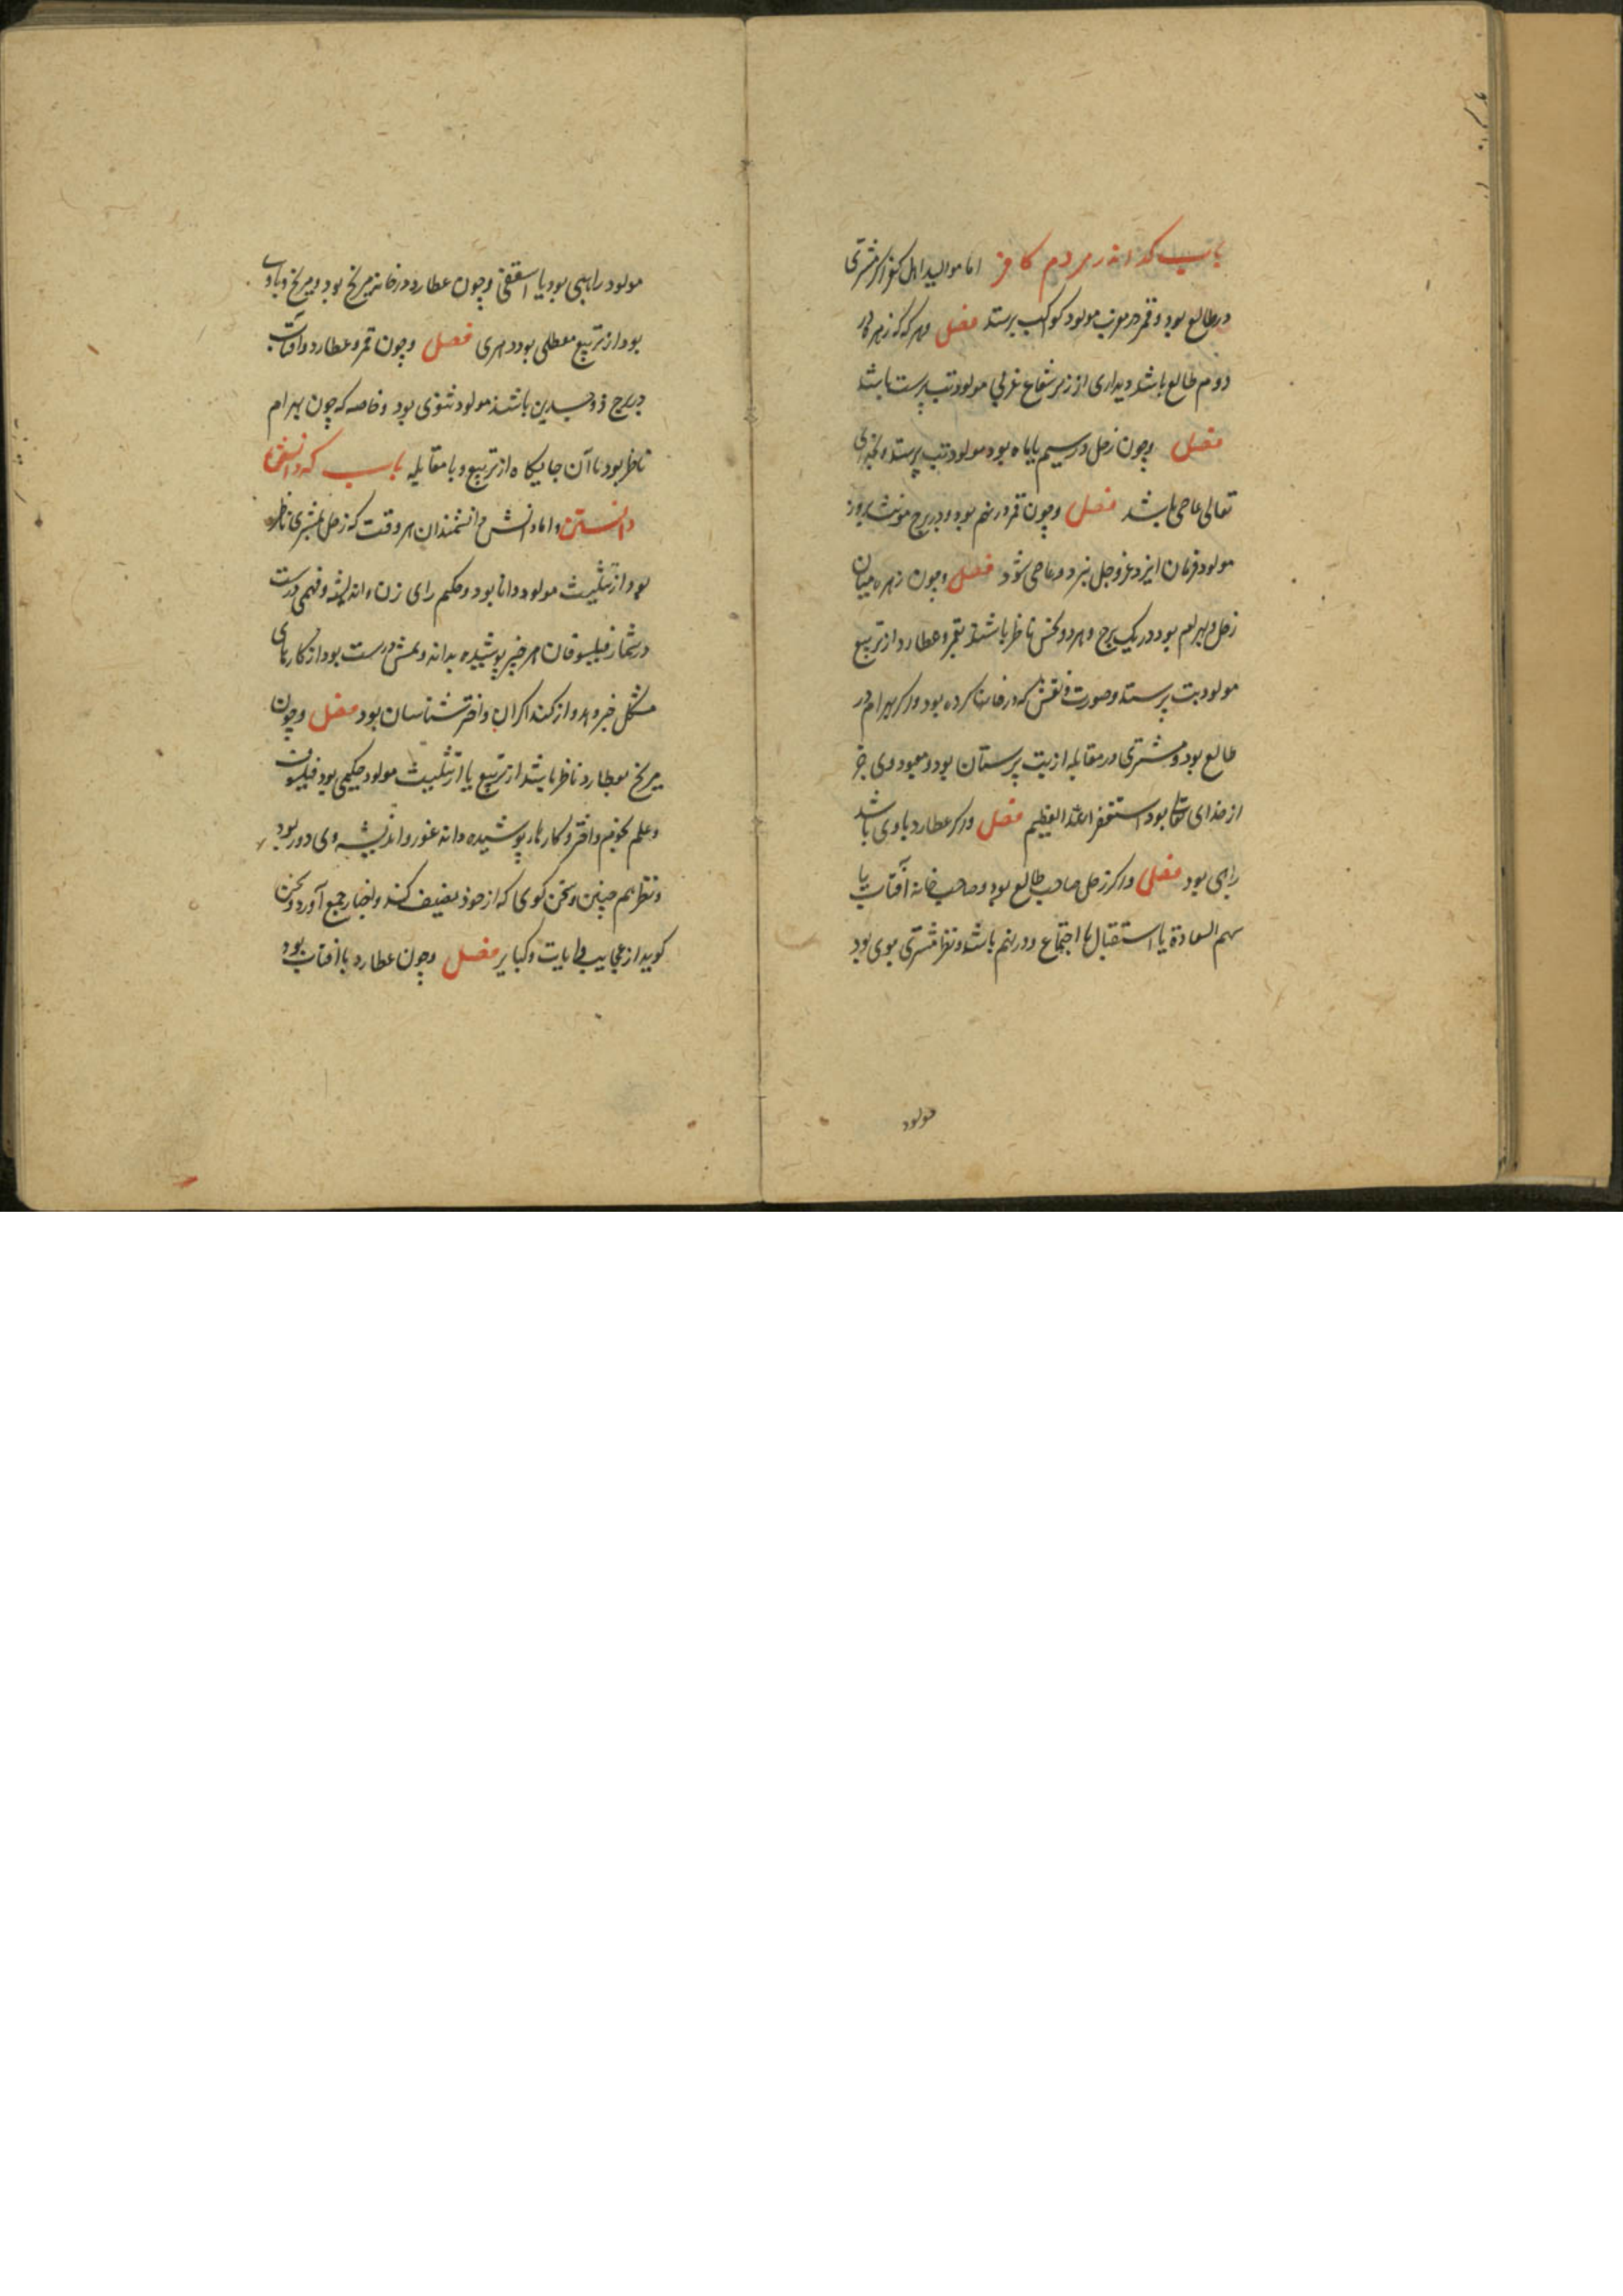 باب که اندر مردم کافر اما موالید اهل کفر اگر مشتری
در طالع بود و قمر در مغرب مولود کواکب پرستد فصل و هرکه که زهره در
دوم طالع باشد دیداری از زیر شعاع غربی مولود بت پرست باشد
فصل و چون زحل در سیم یا باه بود مولود بت پرستد و بخدای
تعالی عاصی باشد فصل و چون قمر در نهم بود و در برج مونث بروز
مولود فرمان ایزد عز و جل نبرد و عاصی شود فصل و چون زهره میان
زحل و بهرام بود در یک برج و هر دو نحس ناظر باشند بقمر و عطارد از تربیع
مولود بت پرستد و صورت و نقش که در خانها کرده بود و اگر بهرام در
طالع بود و مشتری در مقابله از بت پرستان بود و معبود وی جز
از خدای تعالی بود استغفر الله العظیم فصل و اگر عطارد با وی باشد
راهبی بود فصل و اگر زحل صاحب طالع بود و صاحب خانه آفتاب یا
سهم السعادة یا استقبال یا اجتماع و در نهم باشد و نظر مشتری بوی بود
مولود
مولود راهبی بود یا اسقفی و چون عطارد در خانه مریخ بود و مریخ با وی
بود از تربیع معطلی بود دهری فصل و چون قمر و عطارد و آفتاب
در برج ذو جسدین باشند مولود ثنوی بود و خاصه که چون بهرام
ناظر بود با آن جایگاه از تربیع و یا مقابله باب که دانش
دانستن و اما دانش دانشمندان هر وقت که زحل بمشتری ناظر
بود از تثلیث مولود دانا بود و حکیم رای زن و اندیشه و فهمی درست
در شمار فیلسوفان هر خبر پوشیده بداند و علمش درست بود از کارهای
مشکل خبر دهد و از کندا کران و اختر شناسان بود فصل و چون
مریخ بعطارد ناظر باشد از تربیع یا از تثلیث مولود حکیمی بود فیلسوف
و علم نجوم و اختر و کارها پوشیده داند غور و اندیشه وی دور بود
و نظر هم چنین و سخن کوی که از خود تصنیف کند و اخبار جمع آورد و سخن
کوید از عجایب و ایات و کبایر فصل و چون عطارد با آفتاب بود